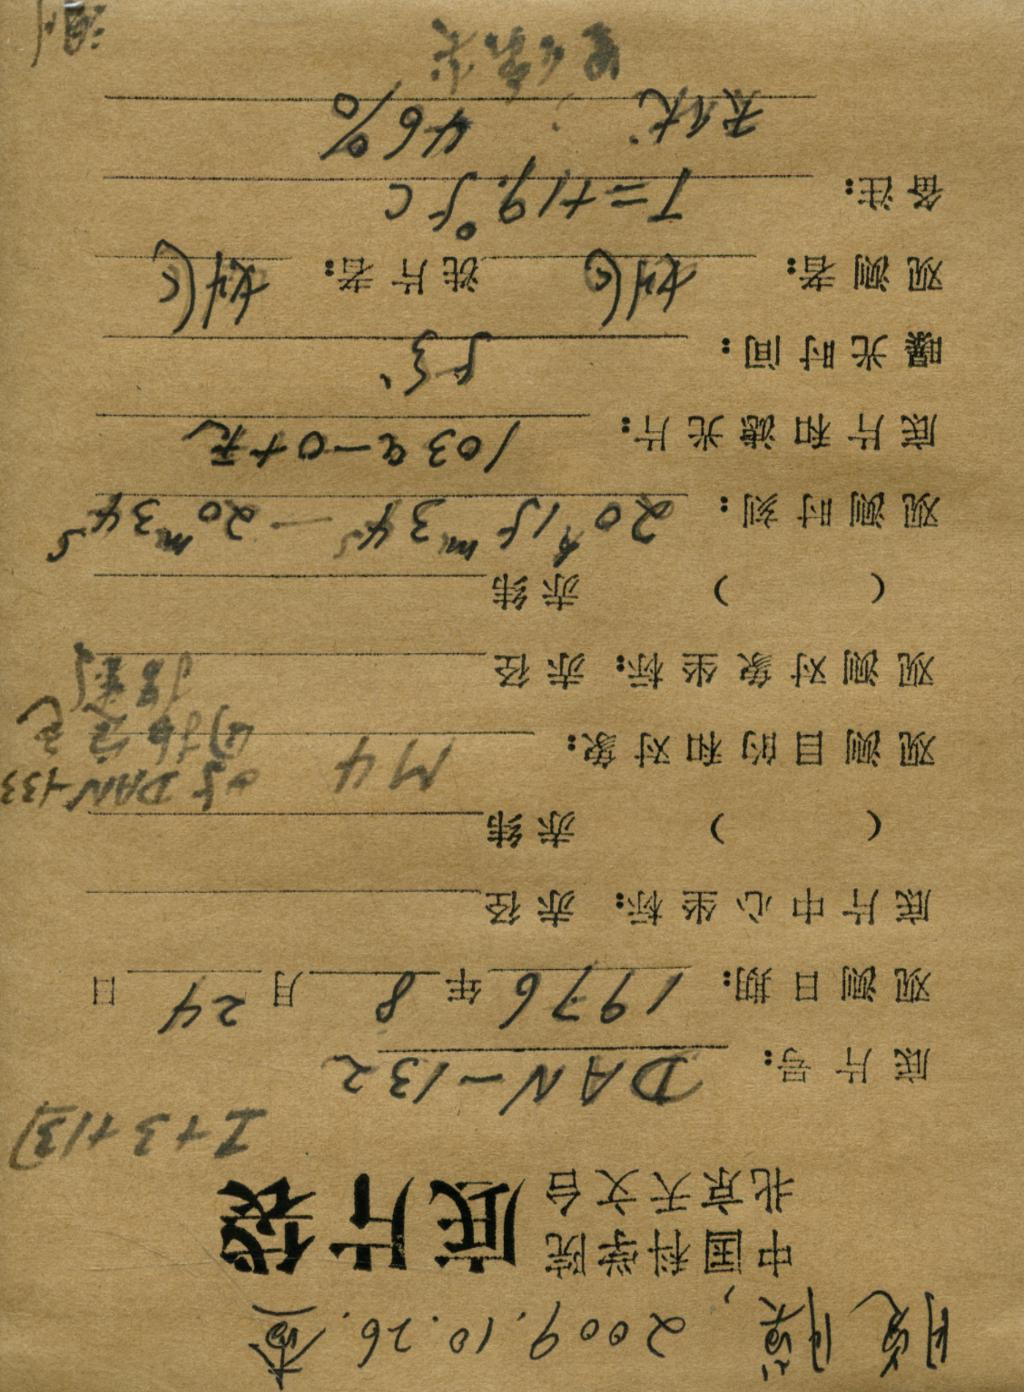 2009.10.26.查
中国科学院
北京天文台
底片袋
I+3+13
底片号: DAN-132
观测日期: 1976年8月24日
底片中心坐标: 赤径
( ) 赤纬
观测目的和对象: M4
与DAN-133
观测对象坐标: 赤径
( ) 赤纬
观测时刻: 20h15m34s—20m34s
底片和滤光片: 103a-O+无
曝光时间: 5分
观测者: 洗片者:
备注: T=+19.°5C
46%